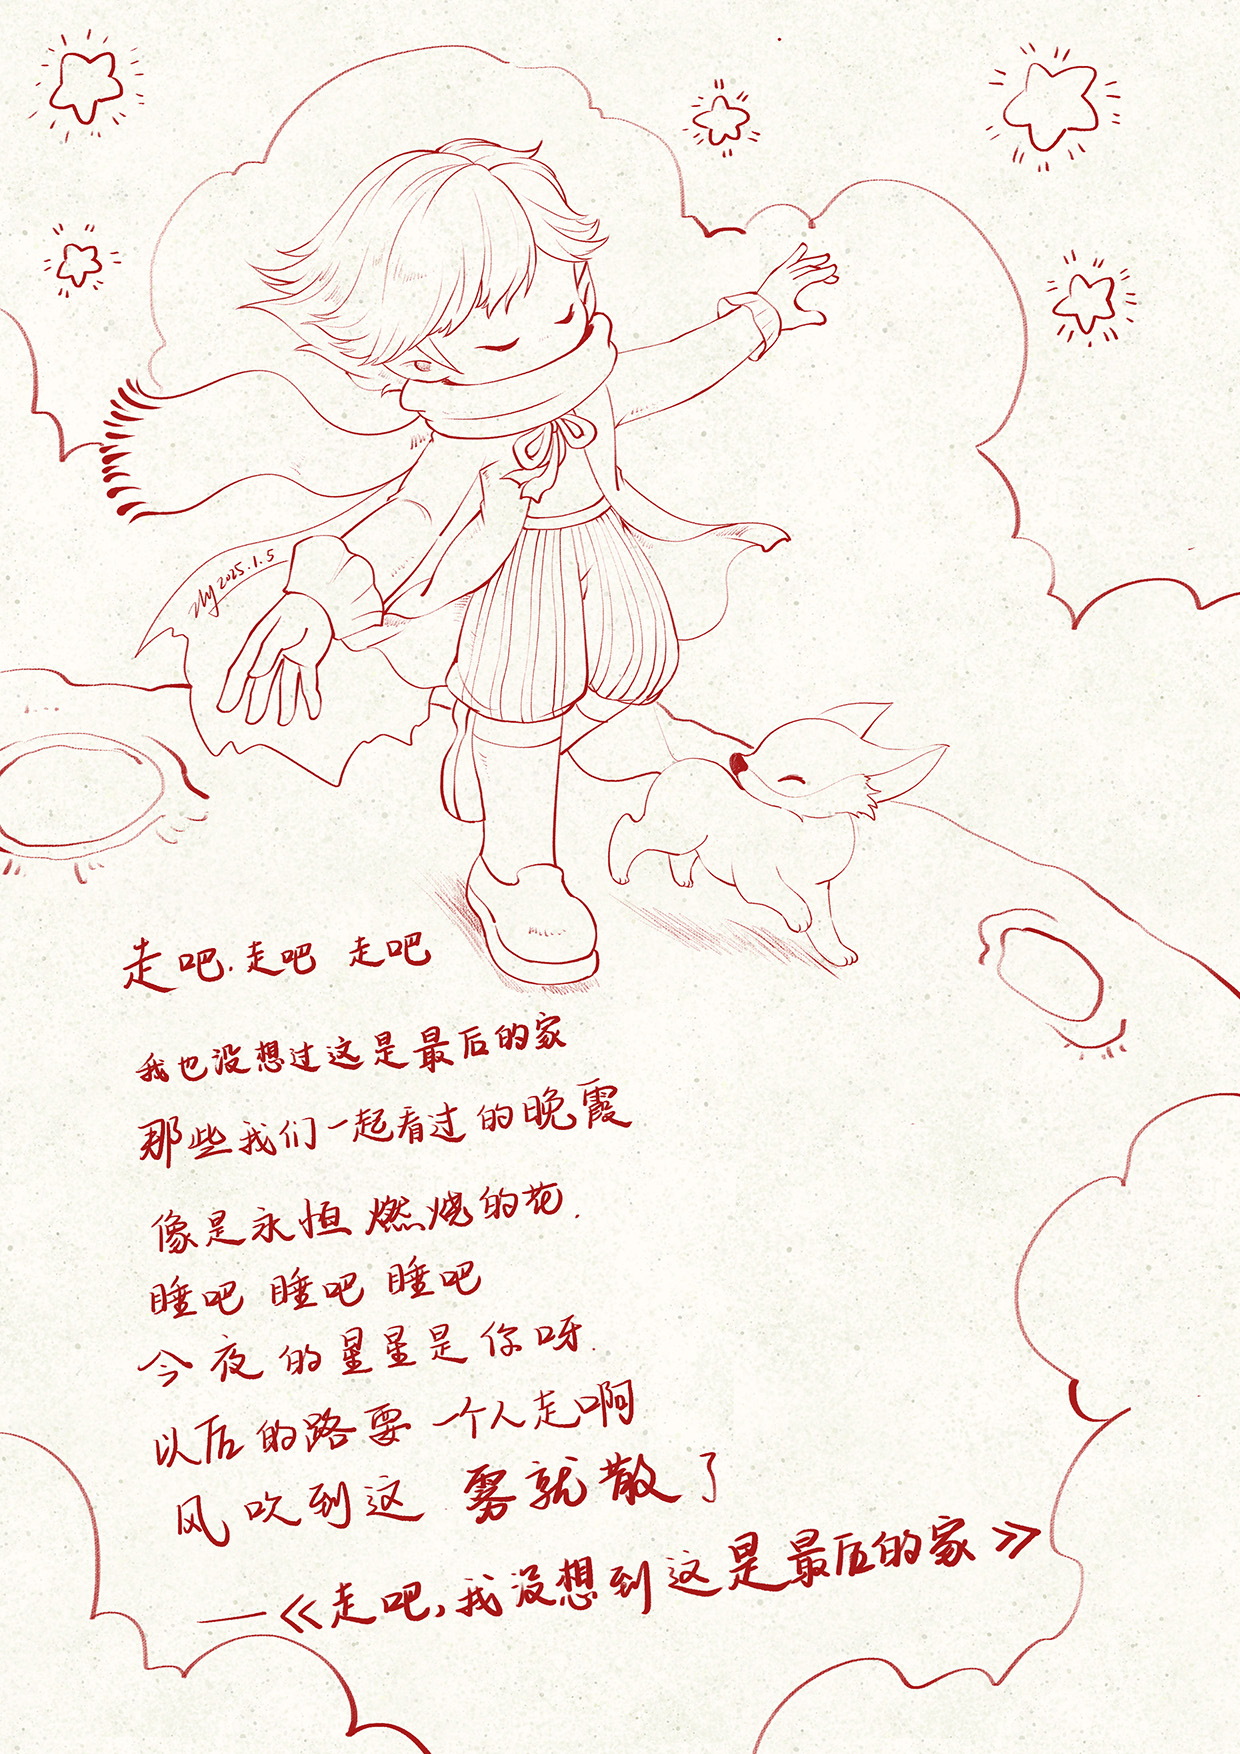 zly 2025.1.5
走吧.走吧 走吧
我也没想过这是最后的家
那些我们一起看过的晚霞
像是永恒燃烧的花.
睡吧 睡吧 睡吧
今夜的星星是你呀.
以后的路要一个人走啊
风吹到这 雾就散了
——《走吧,我没想到这是最后的家》